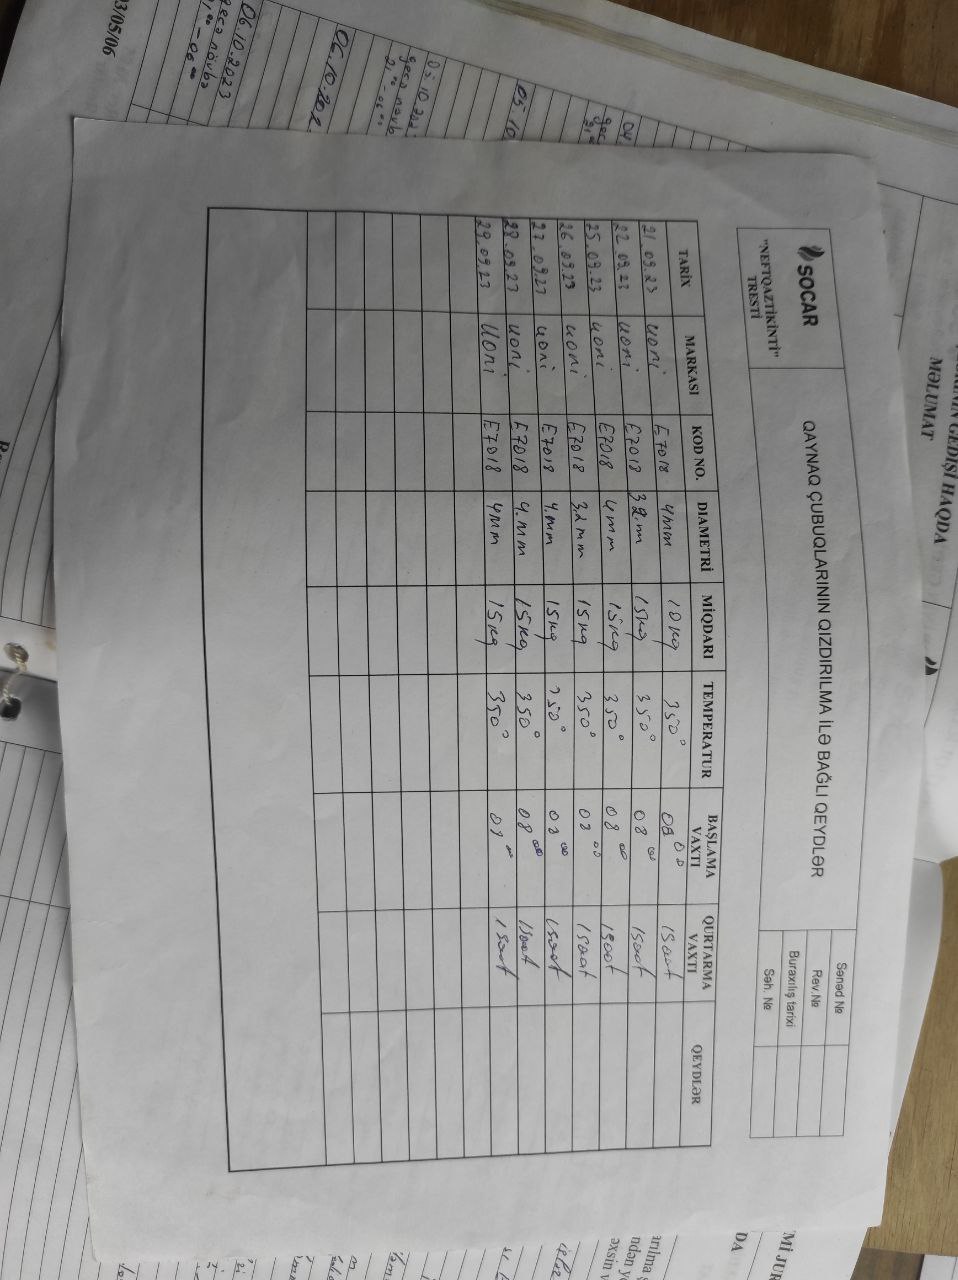 SOCAR
"NEFTQAZTİKİNTİ"
TRESTİ
QAYNAQ ÇUBUQLARININ QIZDIRILMA İLƏ BAĞLI QEYDLƏR
Sənəd №
Rev.№
Buraxılış tarixi
Səh. №
TARİX MARKASI KOD NO. DIAMETRİ MİQDARI TEMPERATUR BAŞLAMA VAXTI QURTARMA VAXTI QEYDLƏR
21.09.23 uoni E7018 4mm 10kg 350° 08 00 1saat
22.09.23 uoni E7018 32.m 15kg 350° 08 00 1saat
25.09.23 uoni E7018 4mm 15kg 350° 08 00 1saat
26.09.23 uoni E7018 3,2mm 15kg 350° 08 00 1saat
27.09.23 uoni E7018 4.mm 15kg 350° 08 00 1saat
28.09.23 uoni E7018 4.mm 15kg 350° 08 00 1saat
29.09.23 uoni E7018 4mm 15kg 350° 08 00 1saat
3/05/06
06.10.2023
gecə növbə
06.10.202
05.10.202
gecə növb
05.10
04.
GEDİŞİ HAQDA
MƏLUMAT